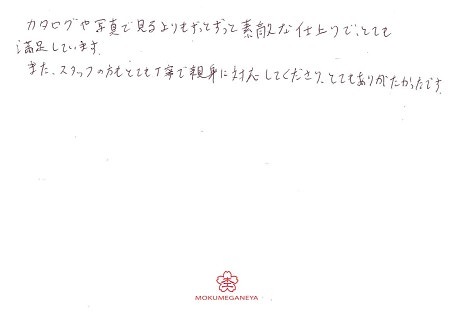 カタログや写真で見るよりもずっとずっと素敵な仕上りで、とても
満足しています。
また、スタッフの方もとても丁寧で親身に対応してくださり、とてもありがたかったです。
杢
MOKUMEGANEYA